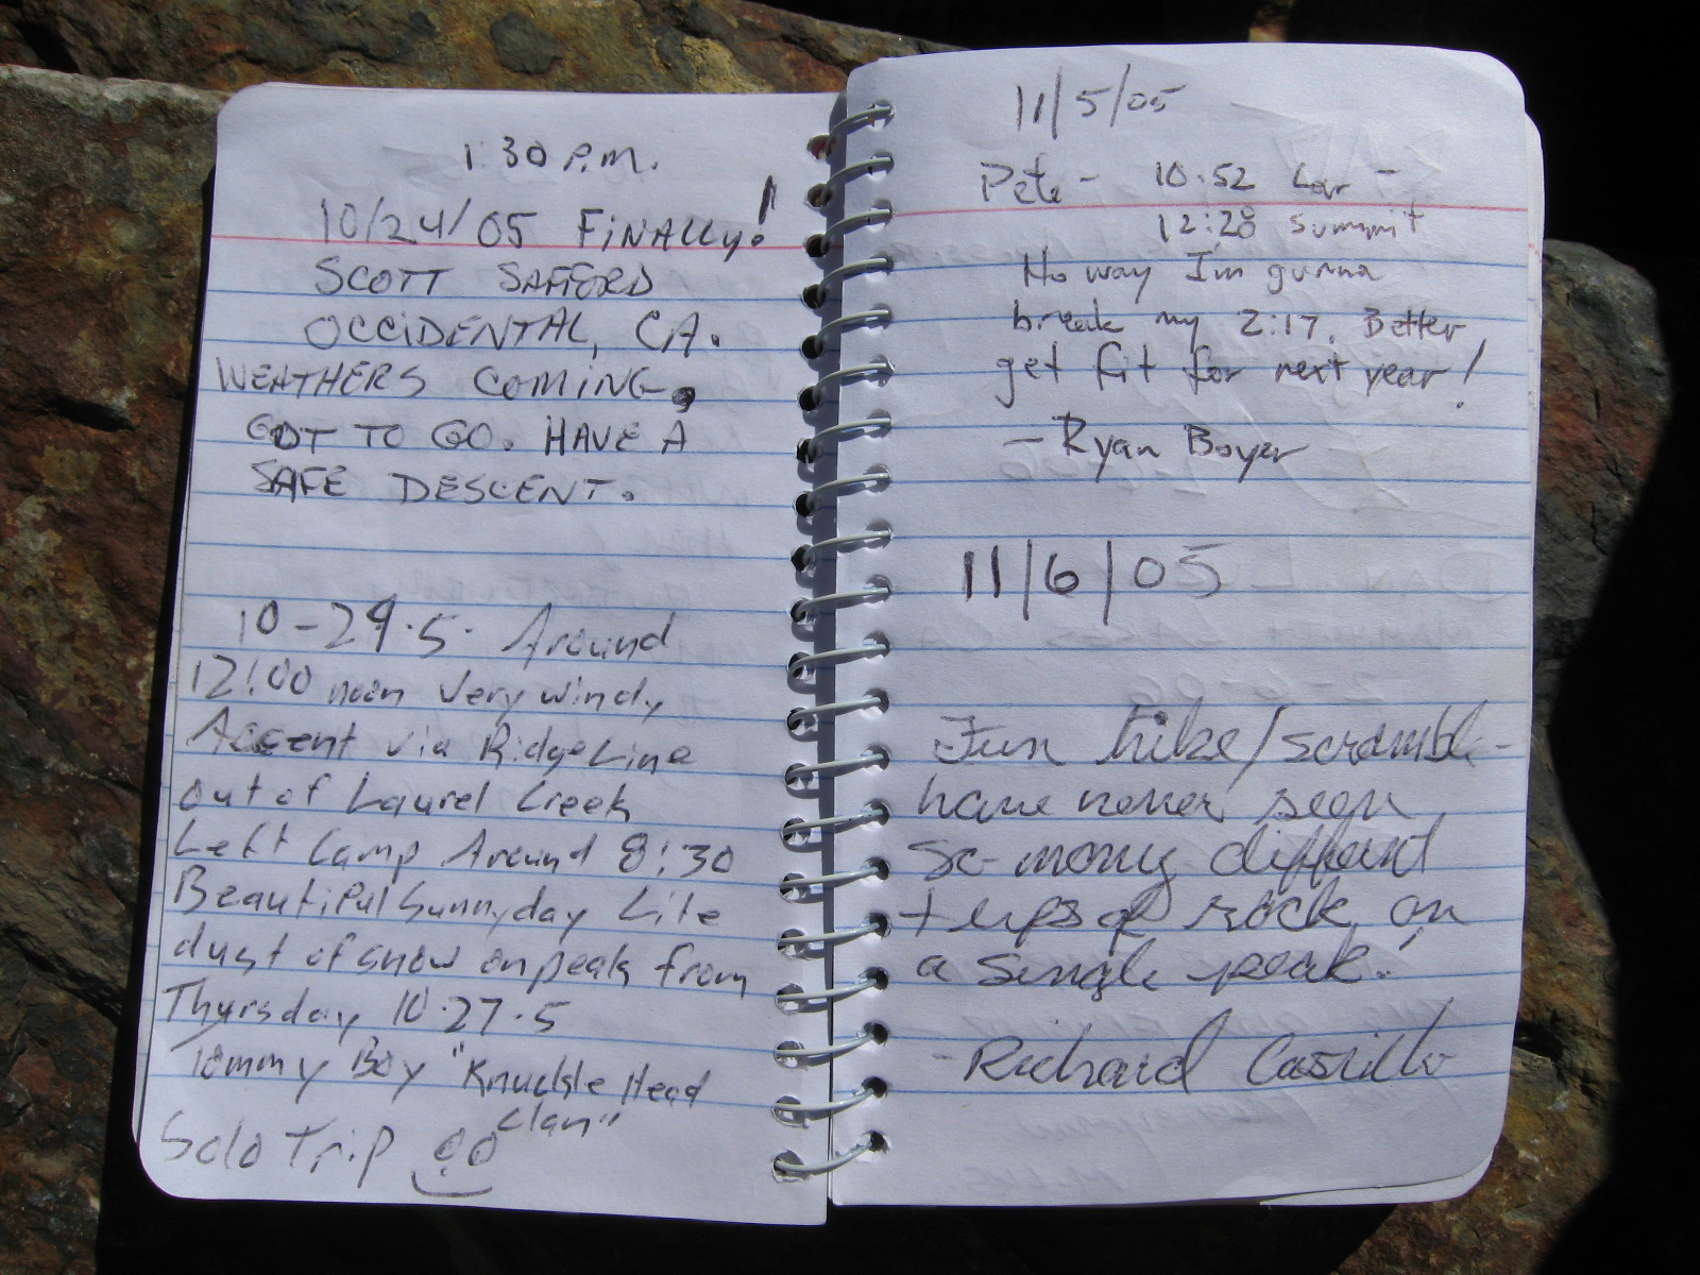 1:30 P.M.
10/24/05 FINALLY!
SCOTT SAFFORD
OCCIDENTAL, CA.
WEATHERS COMING,
GOT TO GO. HAVE A
SAFE DESCENT.
10-29.5. Around
12:00 noon Very windy
Accent via RidgeLine
out of Laurel Creek
Left Camp Around 8:30
Beautiful Sunnyday Lite
dust of snow on peak from
Thursday 10.27.5
Tommy Boy "Knuckle Head
Clan"
Solo Trip
11/5/05
Pete - 10:52 Car -
12:28 summit
No way I'm gunna
break my 2:17. Better
get fit for next year!
- Ryan Boyer
11/6/05
Fun hike/scramble -
have never seen
so many different
types of rock on
a single peak!
- Richard Castillo